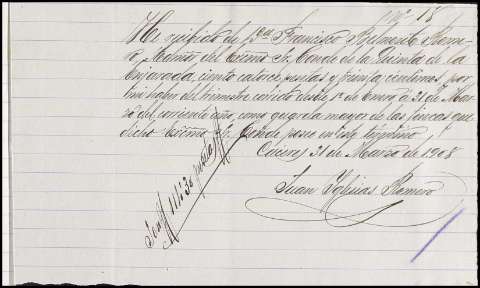 Nº 18
He recibido de Dn. Francisco Belmonte Rome-
ro, Admor del Excmo Sr. Conde de la Quinta de la
Enjarada, ciento catorce pesetas y treinta céntimos por
mi haber del trimestre corrido desde 1º de Enero á 31 de Mar-
zo del corriente año, como guarda mayor de las fincas que
dicho Excmo Sr. Conde posee en este término.
Cáceres 31 de Marzo de 1908
Juan Iglesias Romero
Son 114'30 pesetas